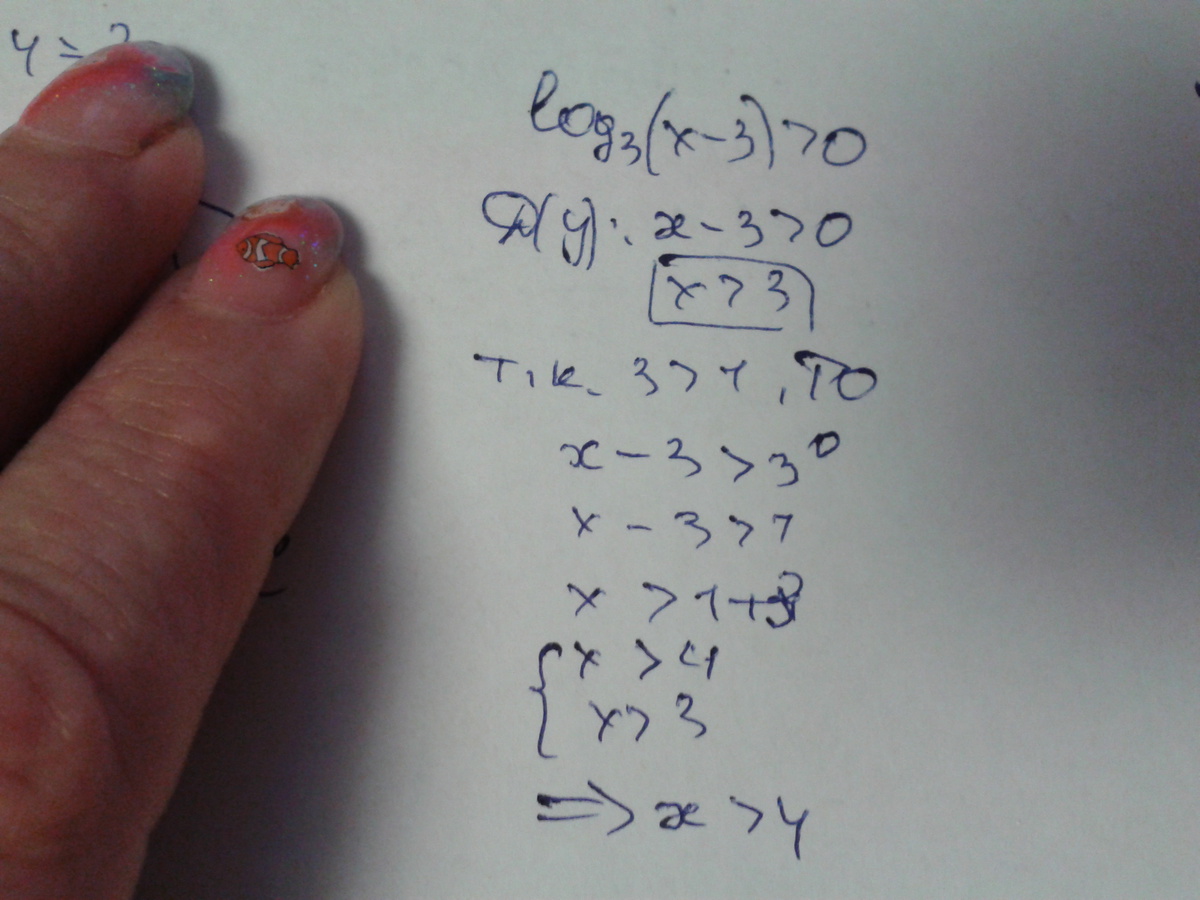 y = ?
log₃(x-3)>0
Д(y): x-3>0
x>3
т.к. 3>1, то
x-3>3⁰
x-3>1
x>1+3
{x>4
x>3
⇒ x>4